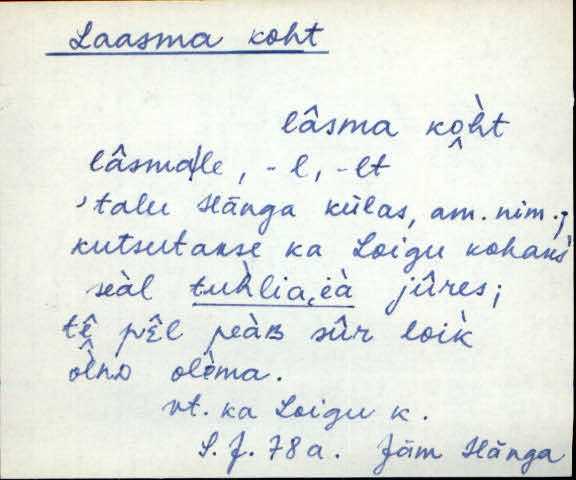 Laasma koht
lâsma kòht
lâsma|le, -l, -lt
'talu Hānga külas, am. nim.;
kutsutakse ka Loigu kohaks'
seàl tuhlia,eà jûres;
tê pêl peàB sûr loik̀
olno olema.
vt. ka Loigu k.
S.J. 78 a. Jäm Hānga